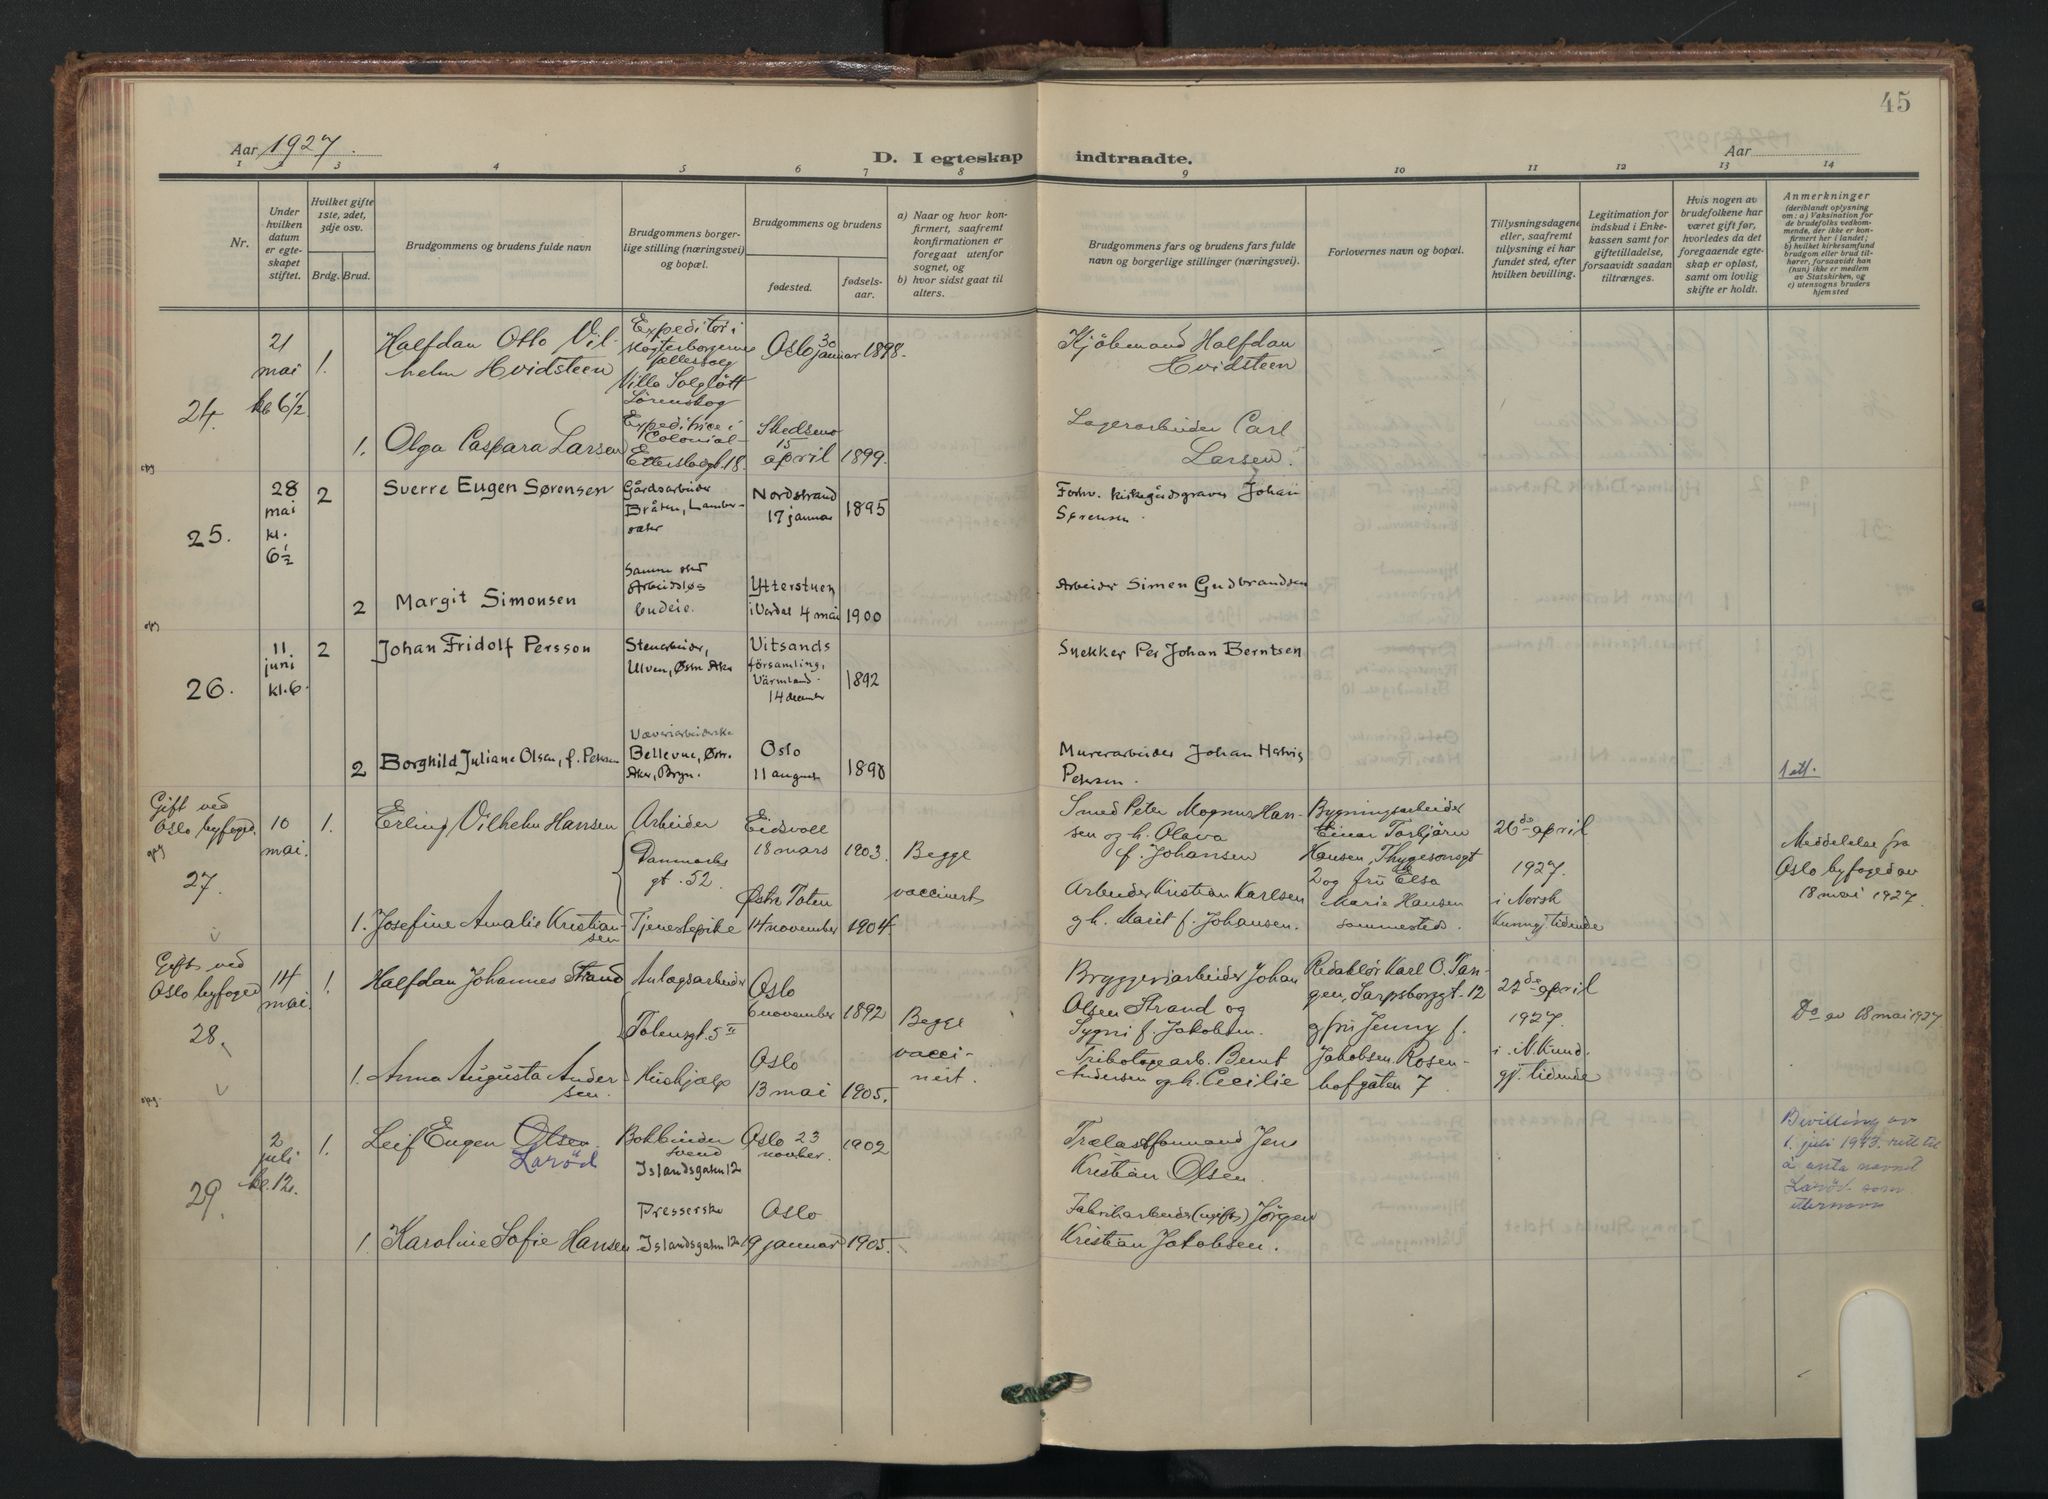 45
Aar 1927.
D. I egteskap indtraadte.
Aar
1 2 3 4 5 6 7 8 9 10 11 12 13 14
Nr.
Under hvilken datum er egteskapet stiftet.
Hvilket gifte 1ste, 2det, 3dje osv.
Brdg. Brud.
Brudgommens og brudens fulde navn
Brudgommens borgerlige stilling (næringsvei) og bopæl.
Brudgommens og brudens
fødested.
fødselsaar.
a) Naar og hvor konfirmert, saafremt konfirmationen er foregaat utenfor sognet, og
b) hvor sidst gaat til alters.
Brudgommens fars og brudens fars fulde navn og borgerlige stillinger (næringsvei).
Forlovernes navn og bopæl.
Tillysningsdagene eller, saafremt tillysning ei har fundet sted, efter hvilken bevilling.
Legitimation for indskud i Enkekassen samt for giftetilladelse, forsaavidt saadan tiltrænges.
Hvis nogen av brudefolkene har været gift før, hvorledes da det foregaaende egteskap er opløst, samt om lovlig skifte er holdt.
Anmerkninger
(deriblandt oplysning om: a) Vaksination for de brudefolks vedkommende, der ikke er konfirmert her i landet; b) hvilket kirkesamfund brudgom eller brud tilhører, forsaavidt han (hun) ikke er medlem av Statskirken, og c) utensogns bruders hjemsted
24.
21 mai kl 6½
1.
Halfdan Otto Vilhelm Hvidsteen
Expeditør i
Villa Solgløtt
Lørenskog
Oslo 30 januar 1898.
Kjøbmand Halfdan Hvidsteen
1.
Olga Caspara Larsen
Expeditrice i Colonial-
18.
Skedsmo 15 april 1899.
Lagerarbeider Carl Larsen.
opg
25.
28 mai kl. 6½
2
Sverre Eugen Sørensen
Gårdsarbeider
Bråten, Lambertsæter
Nordstrand 17 januar 1895
Forhv. kirkegårdsgraver Johan Sørensen.
2
Margit Simonsen
Samme sted
Arbeidsløs
budeie.
Ytterstuen i Verdal 4 mai 1900
Arbeider Simen Gudbrandsen
opg
26.
11. juni kl. 6.
2
Johan Fridolf Persson
Stenarbeider,
Ulven, Østre Aker
Vitsands församling, Värmland. 14 december 1892
Snekker Per Johan Berntsen
2
Borghild Juliane Olsen, f. Petersen
Væveriarbeiderske
Bellevue, Østre
Aker, Bryn.
Oslo 11 august 1890
Murerarbeider Johan Hatvig Petersen.
1 att.
Gift ved Oslo byfoged
opg
27.
10 mai.
1.
Erling Vilhelm Hansen
Arbeider
Danmarks gt. 52.
Eidsvoll 18 mars 1903.
Begge vaccinert
Smed Peter Magnus Hansen og h. Olava f. Johansen
Bygningsarbeider Einar Torbjørn Hansen, Thygesonsgt 2 og fru Elsa Marie Hansen sammesteds.
26de april 1927. i Norsk Kunngj. tidende
Meddelelse fra Oslo byfoged av 18 mai 1927.
1.
Josefine Amalie Kristiansen
Tjenestepike
Østre Toten 14 november 1904.
Arbeider Kristian Karlsen og h. Marit f. Johansen.
Gift ved Oslo byfoged
28.
14 mai.
1.
Halfdan Johannes Strand
Anlægsarbeider
Totensgt. 5 II
Oslo 6 november 1892
Begge vaccinert.
Bryggeriarbeider Johan Olsen Strand og f. Jakobsen.
Redaktør Karl O. Tangen, Sarpsborggt. 12 og fru Jenny f. Jakobsen. Rosenhofgaten 7
22de april 1927. i N. Kundgj. tidende
Do av 18 mai 1927
1.
Anna Augusta Andersen.
Hushjælp
Oslo 13 mai 1905.
Bernt Andersen og h. Cecilie
opg.
29.
2 juli kl. 12.
1.
Leif Eugen Olsen
Larød
Bokbindersvend
Islandsgaten 12
Oslo 23 novber. 1902
Trælastformand Jens Kristian Olsen.
Bevilling av 1. juli 1943. rett til å anta navnet Larød som etternavn
1.
Karoline Sofie Hansen
Presserske
Islandsgaten 12
Oslo 19 januar 1905.
Fabrikarbeider (ugift) Jørgen Kristian Jakobsen.